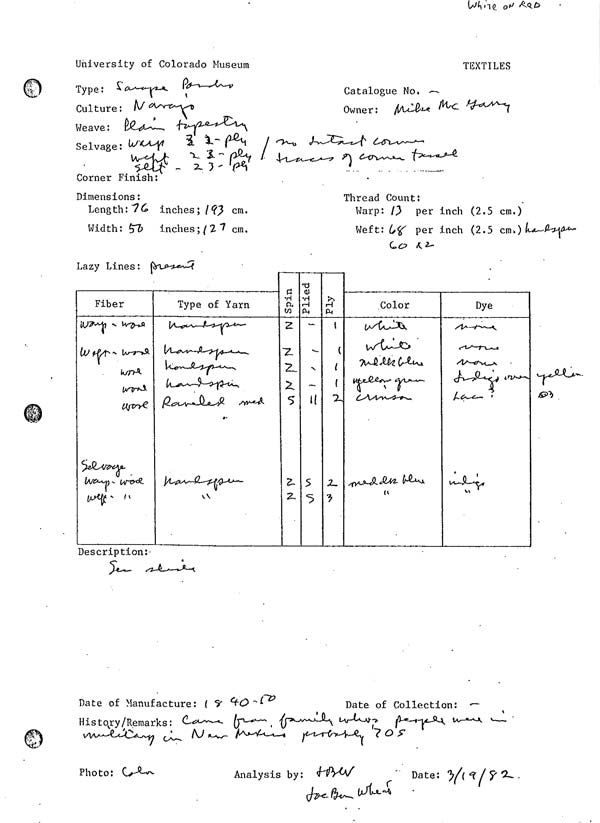 White on Red
University of Colorado Museum TEXTILES
Type: Sarape Poncho Catalogue No. —
Culture: Navajo Owner: Mike Mc
Weave: Plain tapestry
Selvage: warp 2-ply / no intact corner
weft 2 3-ply / traces of corner tassel
self - 2 3-ply
Corner Finish:
Dimensions: Thread Count:
Length: 76 inches; 193 cm. Warp: 13 per inch (2.5 cm.)
Width: 50 inches; 127 cm. Weft: 68 per inch (2.5 cm.) handspun
60 R2
Lazy Lines: present
Fiber Type of Yarn Spin Plied Ply Color Dye
Warp - wool handspun Z - 1 white none
Weft - wool handspun Z - 1 white none
wool handspun Z - 1 med dk blue none
wool handspun Z - 1 yellow green Indigo over yellow
wool Raveled med S 11 2 crimson Lac?
Selvage
Warp - wool handspun Z S 2 med dk blue indigo
weft - " " Z S 3 " "
Description:
See slides
Date of Manufacture: 1840-50 Date of Collection: —
History/Remarks: Came from family whose people were in
military in New Mexico probably 70s
Photo: Color Analysis by: JBW Date: 3/19/82.
Joe Ben Wheat